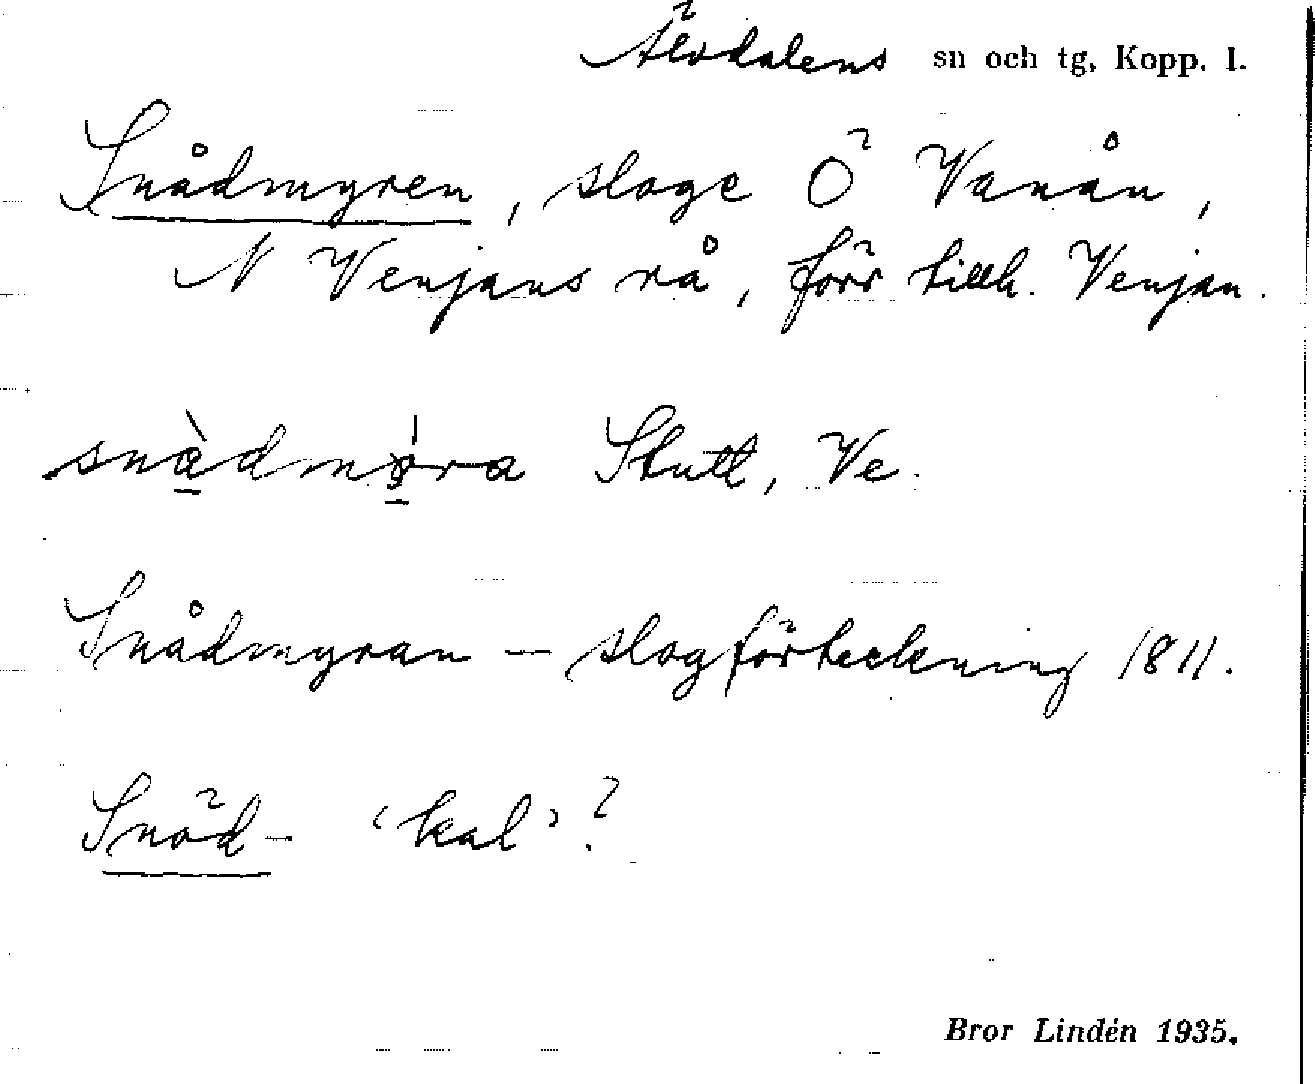 Älvdalens sn och tg, Kopp. l.
Snådmyren, sloge Ö Vanån,
N Venjans rå, förr tillh. Venjan.
snàdmøra Stutt, Ve.
Snådmyran — slogförteckning 1811.
Snöd- ‘kal’?
Bror Lindén 1935.